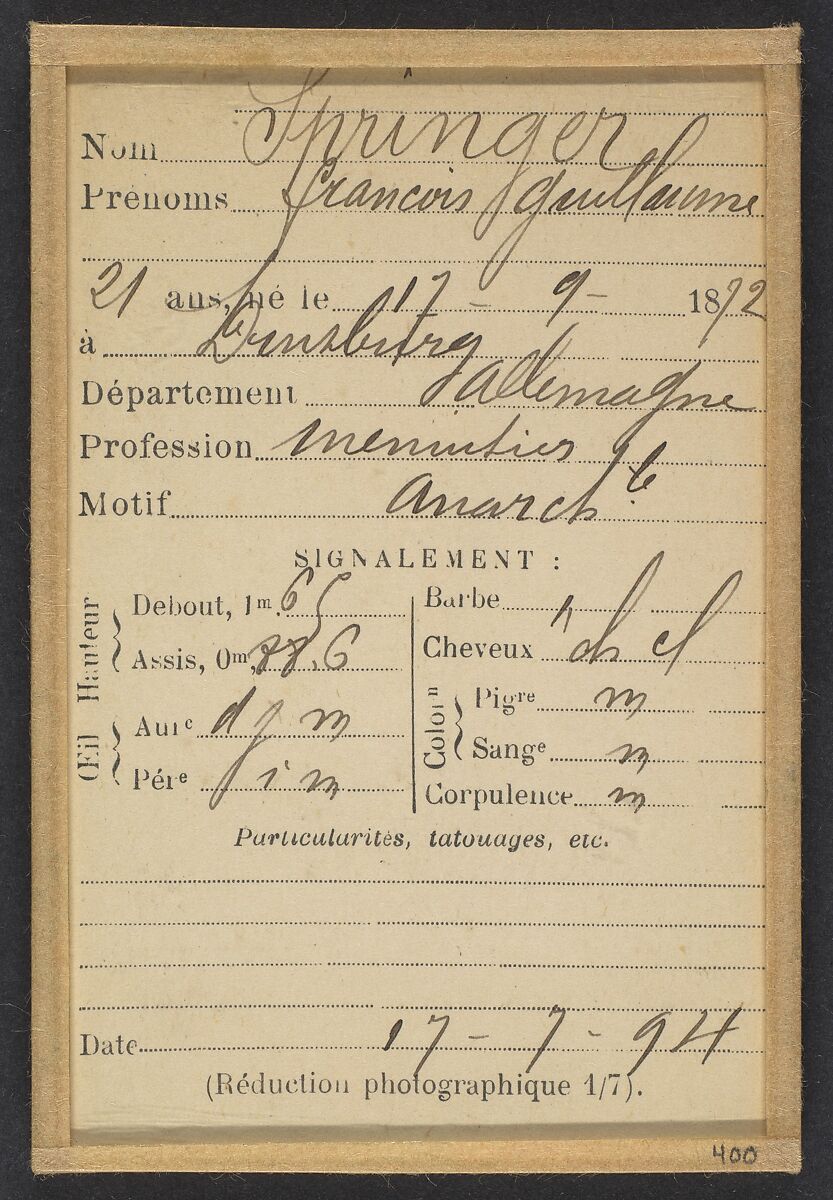 Nom Springer
Prénoms François Guillaume
21 ans, né le 17 - 9 - 1872
à
Département Allemagne
Profession menuisier
Motif anarch. te
SIGNALEMENT :
Hauteur
Debout, 1m. 65
Assis, 0m, 88.6
Œil
Aure d j m
Pére j i m
Barbe
Cheveux ch cl
Colorn
Pigre m
Sange m
Corpulence m
Particularités, tatouages, etc.
Date 17 - 7 - 94
(Réduction photographique 1/7).
400